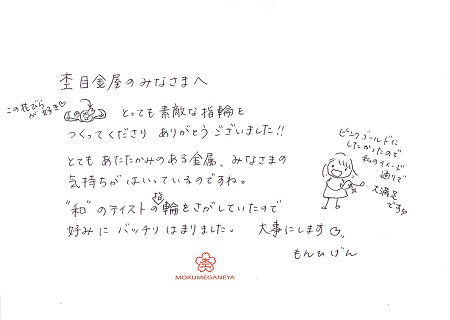 杢目金屋のみなさまへ
この花びらが好き♡
とっても素敵な指輪を
つくってくださり ありがとうございました!!
とてもあたたかみのある金属、みなさまの
気持ちがはいっているのですね。
"和"のテイストの指輪をさがしていたので
好みにバッチリはまりました。 大事にします
ピンクゴールドに
したかったので
私のイメージ
通りで
大満足
です
MOKUMEGANEYA